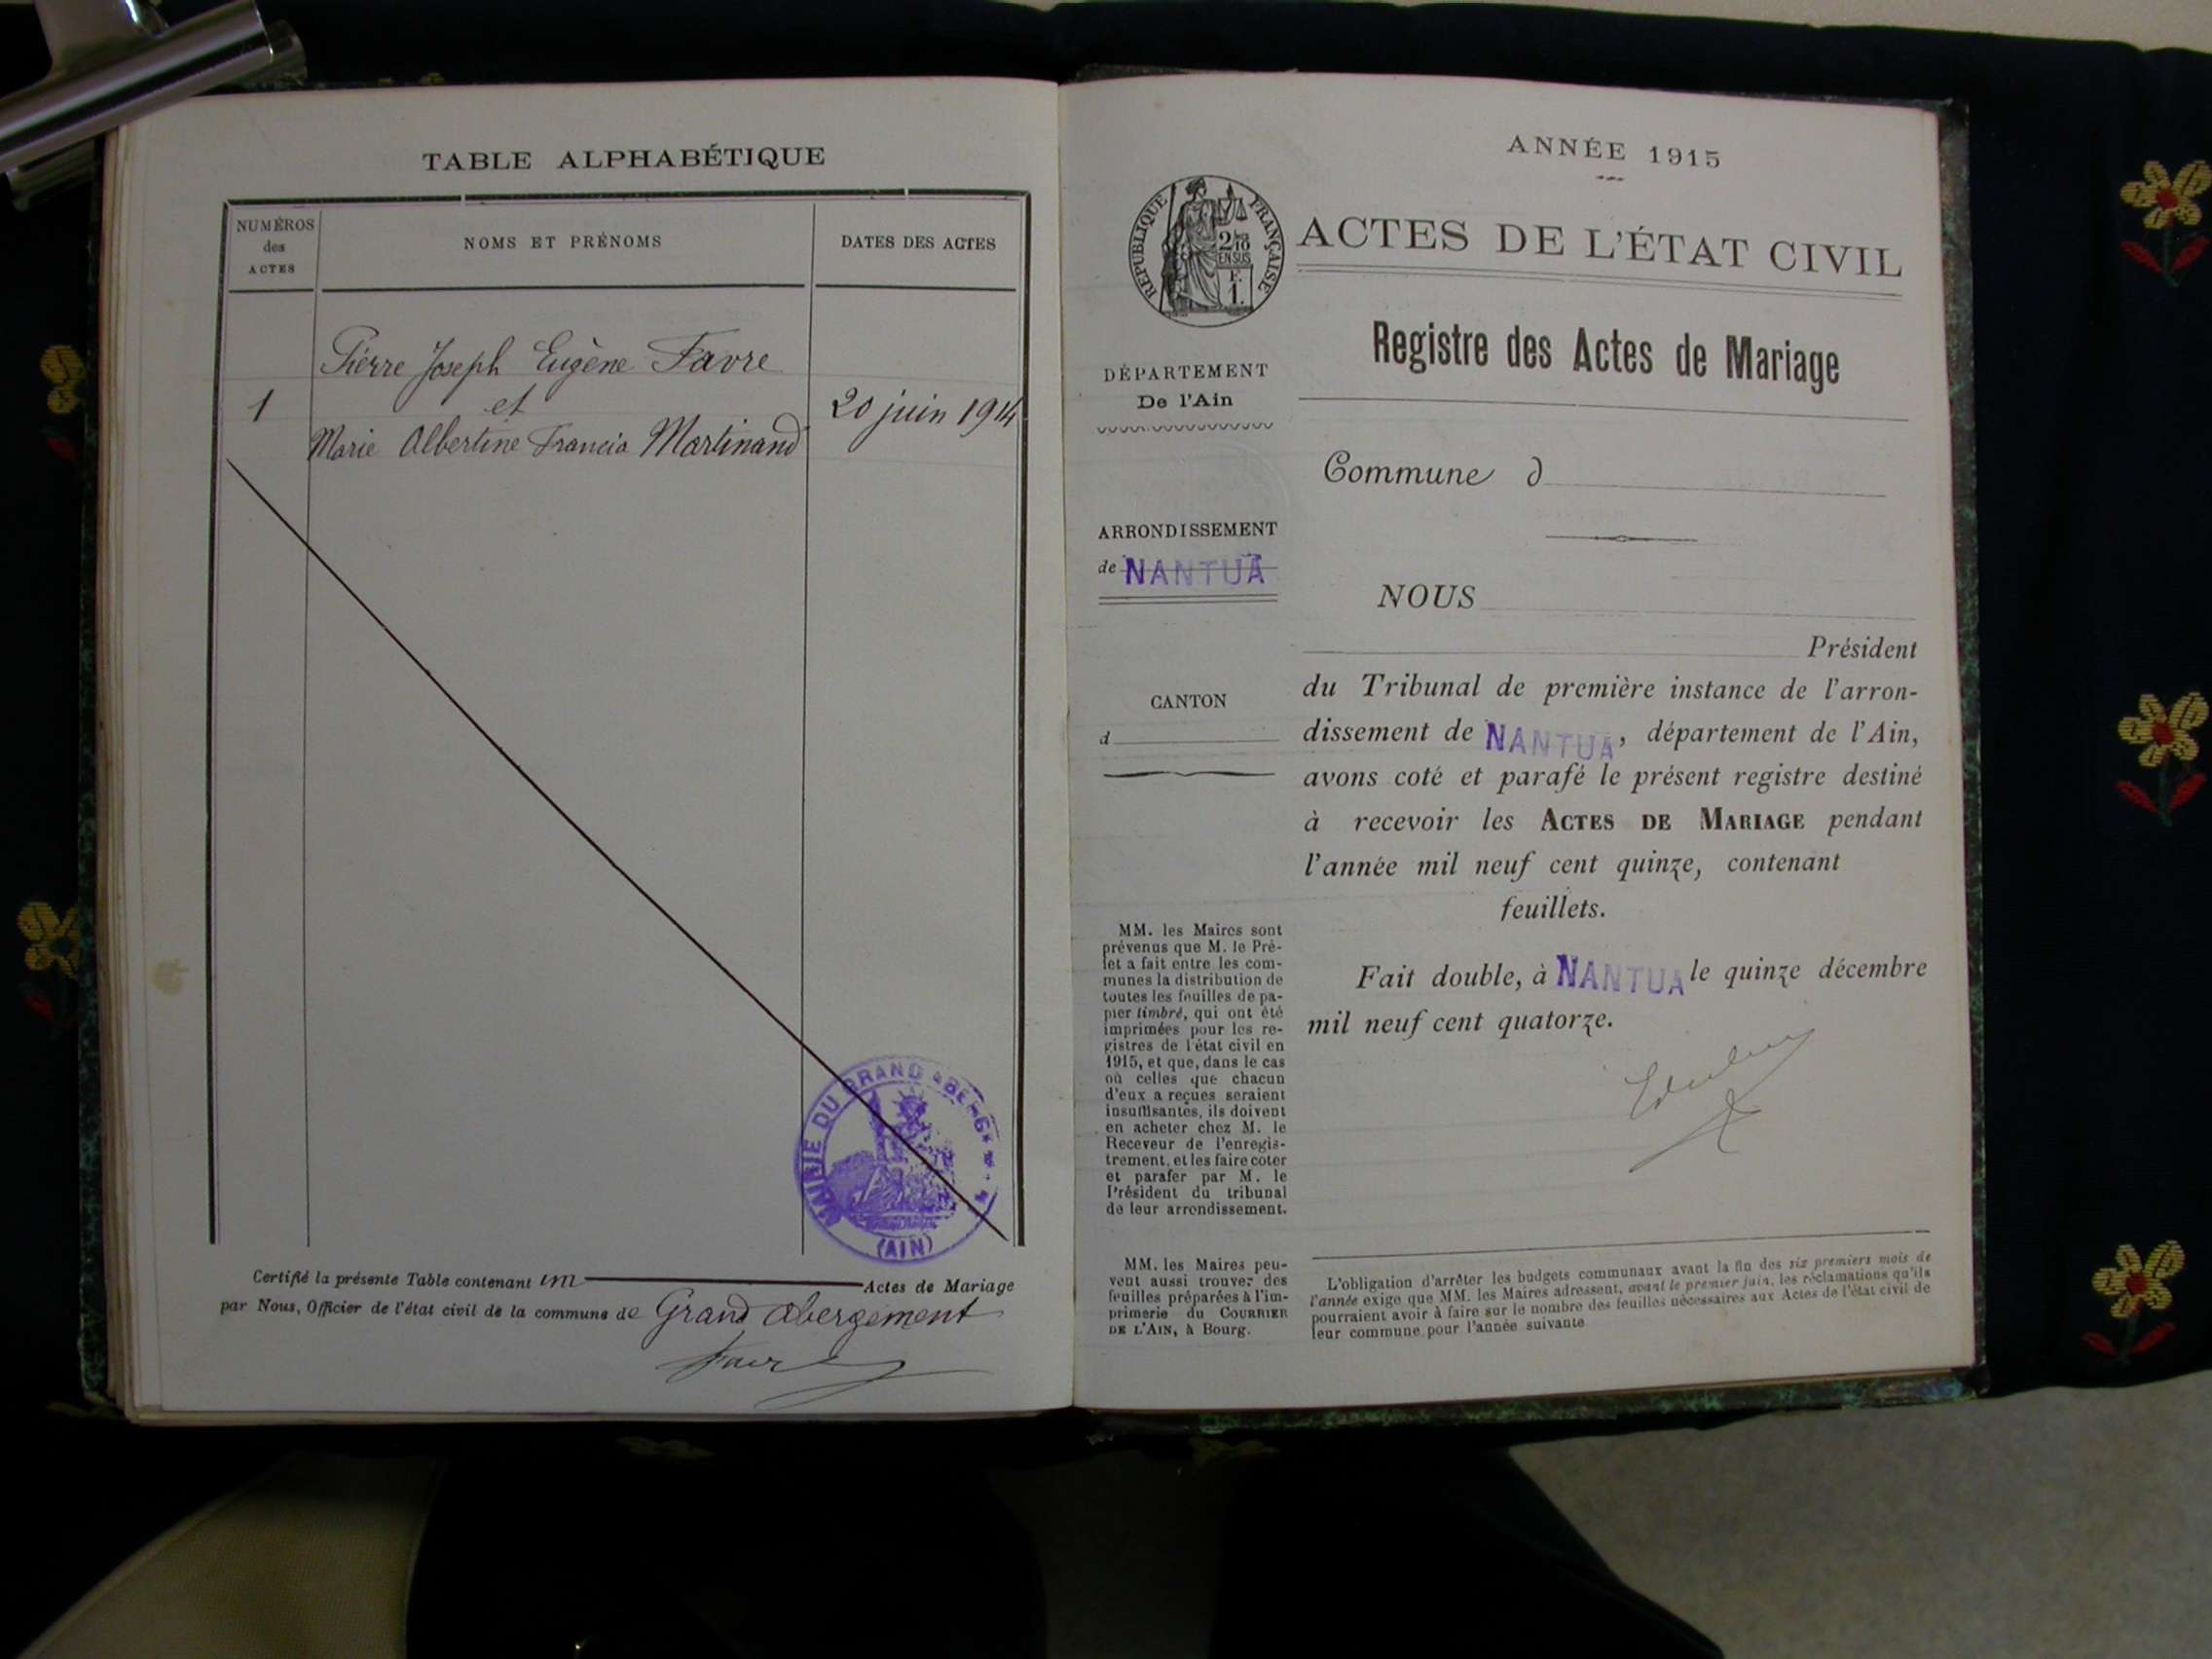 TABLE ALPHABÉTIQUE
NUMÉROS
des
ACTES
NOMS ET PRÉNOMS
DATES DES ACTES
Pierre Joseph Eugène Favre
1
et
20 juin 1914
Marie Albertine Francia Martinand
MAIRIE DU GRAND ABERGEMENT
(AIN)
Certifié la présente Table contenant un Actes de Mariage
par Nous, Officier de l'état civil de la commune de Grand Abergement
ANNÉE 1915
RÉPUBLIQUE FRANÇAISE
2/10
EN SUS
F.
1.
ACTES DE L'ÉTAT CIVIL
Registre des Actes de Mariage
DÉPARTEMENT
De l'Ain
Commune d
ARRONDISSEMENT
de NANTUA
NOUS
Président
CANTON
d
du Tribunal de première instance de l'arron-
dissement de NANTUA, département de l'Ain,
avons coté et parafé le présent registre destiné
à recevoir les ACTES DE MARIAGE pendant
l'année mil neuf cent quinze, contenant
feuillets.
Fait double, à NANTUA le quinze décembre
mil neuf cent quatorze.
MM. les Maires sont
prévenus que M. le Pré-
fet a fait entre les com-
munes la distribution de
toutes les feuilles de pa-
pier timbré, qui ont été
imprimées pour les re-
gistres de l'état civil en
1915, et que, dans le cas
où celles que chacun
d'eux a reçues seraient
insuffisantes, ils doivent
en acheter chez M. le
Receveur de l'enregis-
trement, et les faire coter
et parafer par M. le
Président du tribunal
de leur arrondissement.
MM. les Maires peu-
vent aussi trouver des
feuilles préparées à l'im-
primerie du COURRIER
DE L'AIN, à Bourg.
L'obligation d'arrêter les budgets communaux avant la fin des six premiers mois de
l'année exige que MM. les Maires adressent, avant le premier juin, les réclamations qu'ils
pourraient avoir à faire sur le nombre des feuilles nécessaires aux Actes de l'état civil de
leur commune pour l'année suivante